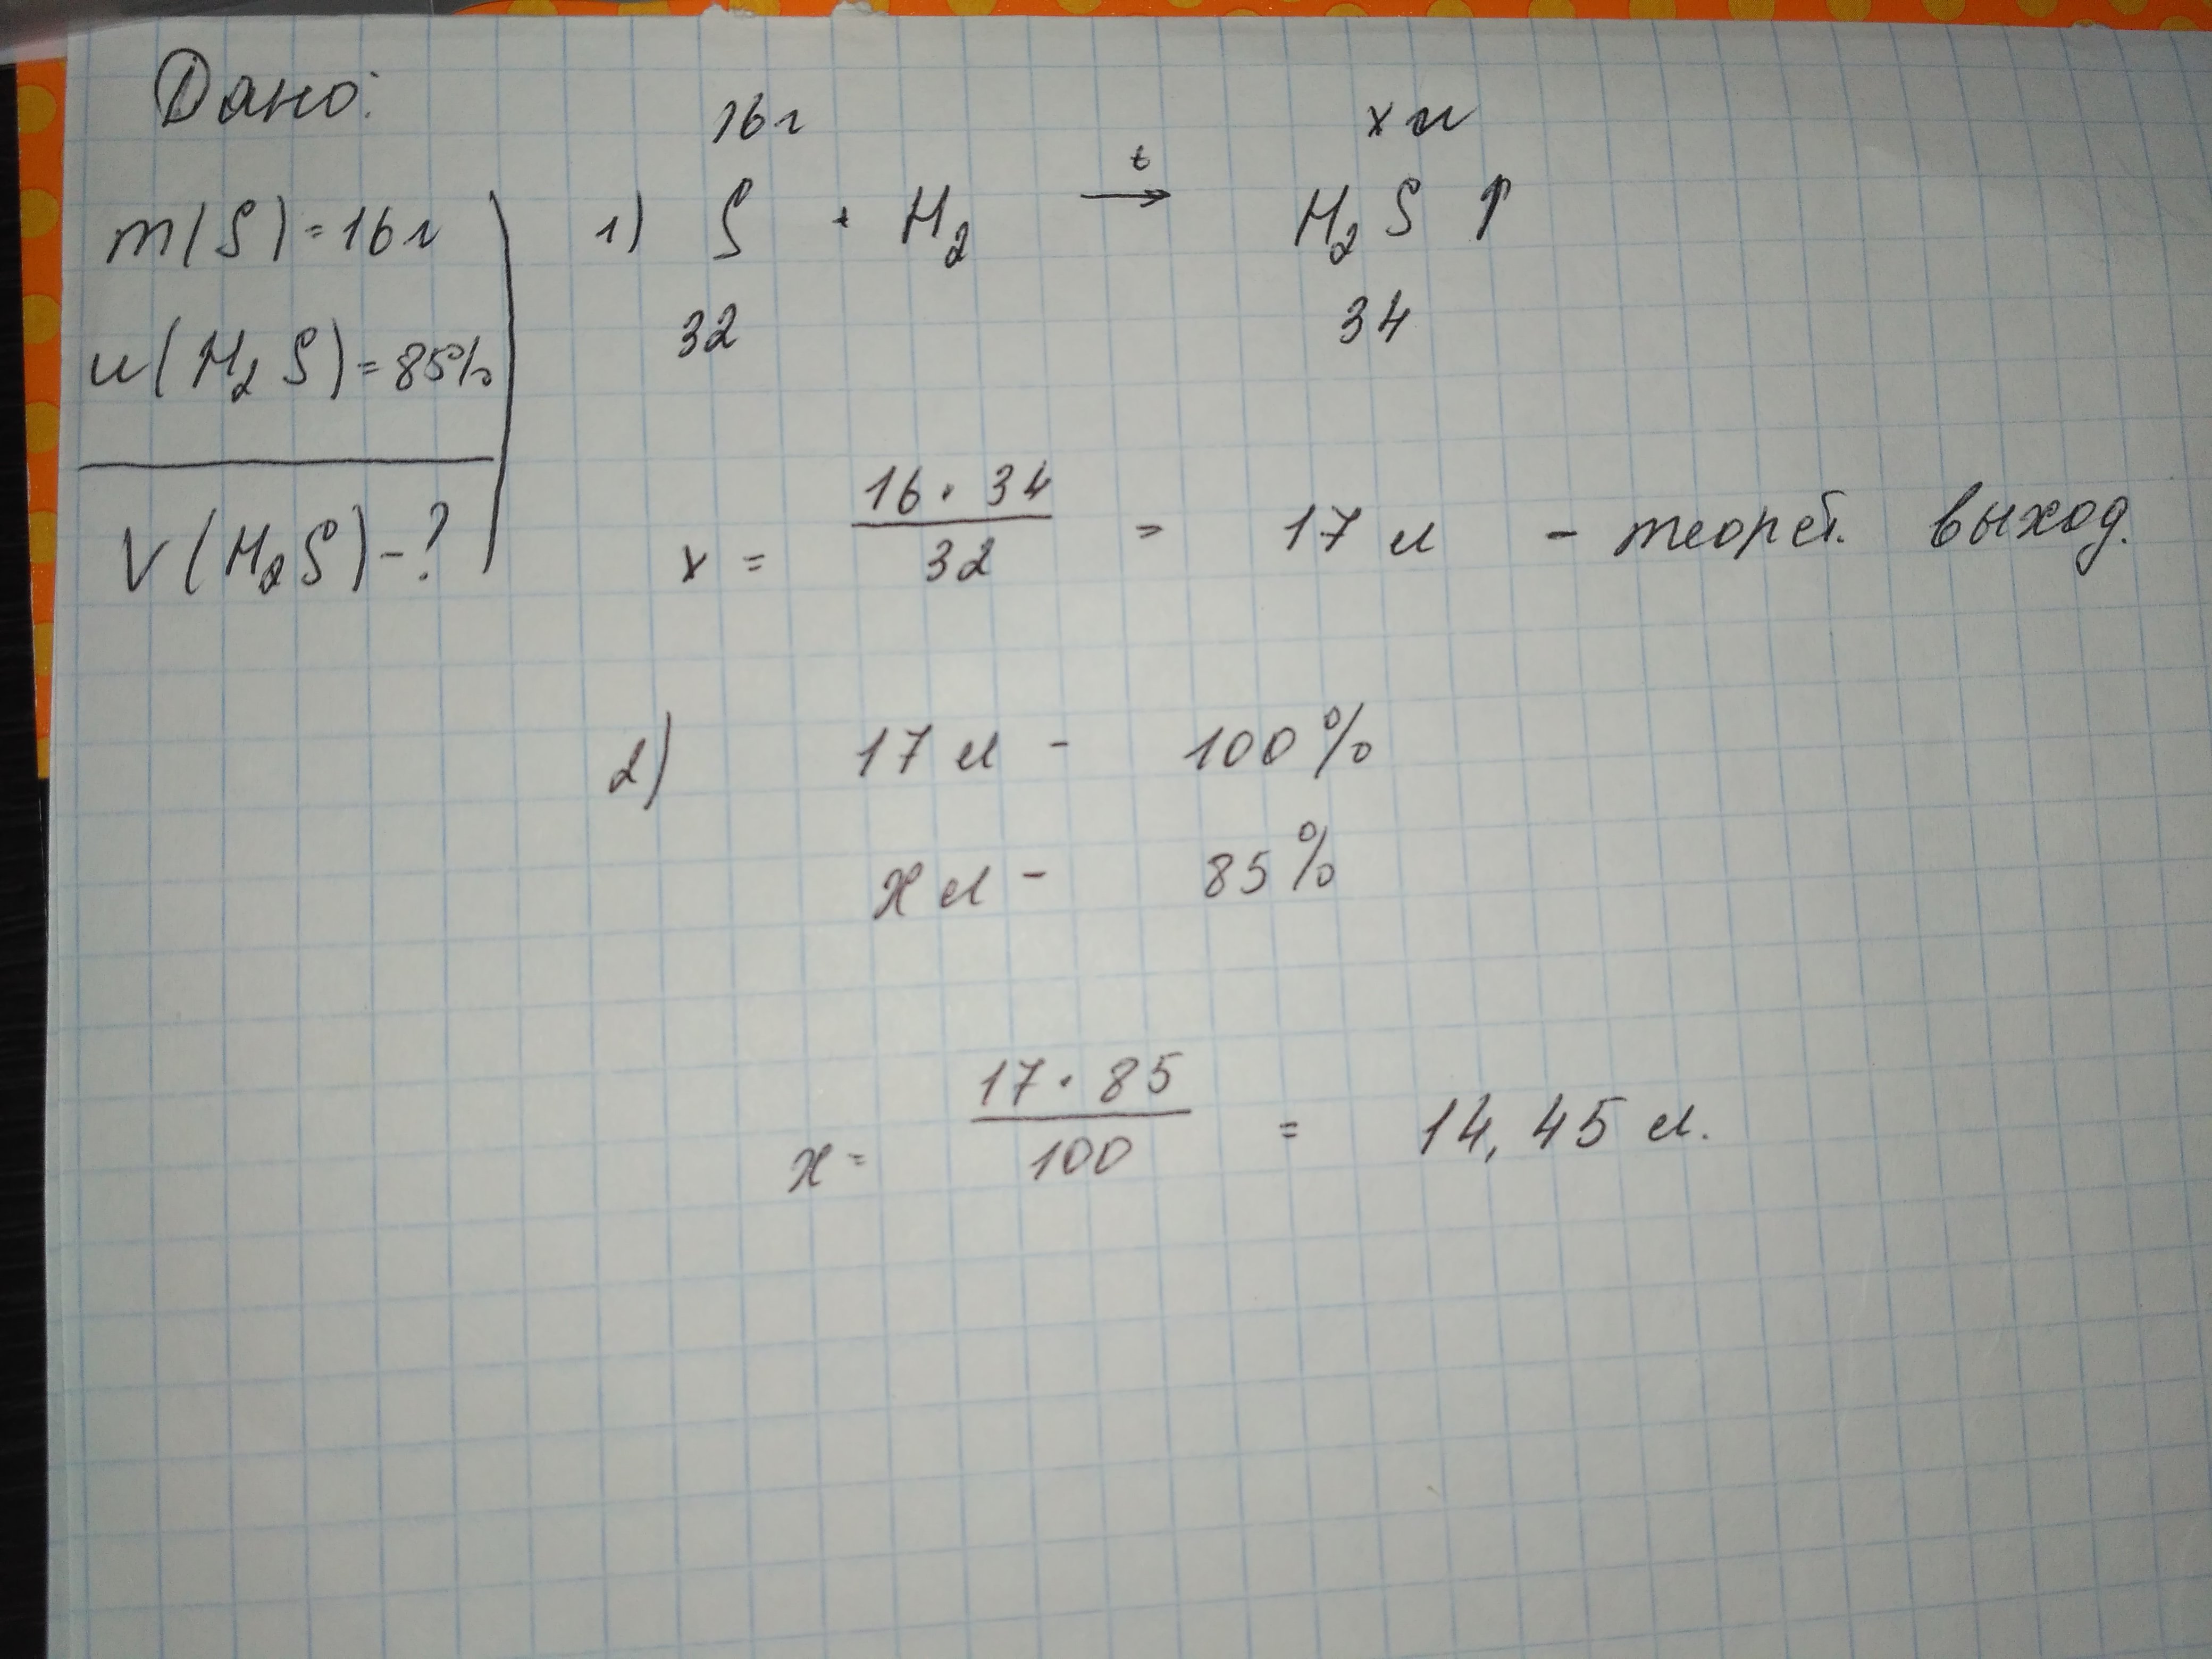 Дано:
m(S) = 16г
u(H₂S) = 85%
V(H₂S) - ?
16г x л
1) S + H₂ →ᵗ H₂S ↑
32 34
x = 16 · 34 / 32 = 17 л - теорет. выход.
2) 17 л - 100%
x л - 85%
x = 17 · 85 / 100 = 14,45 л.